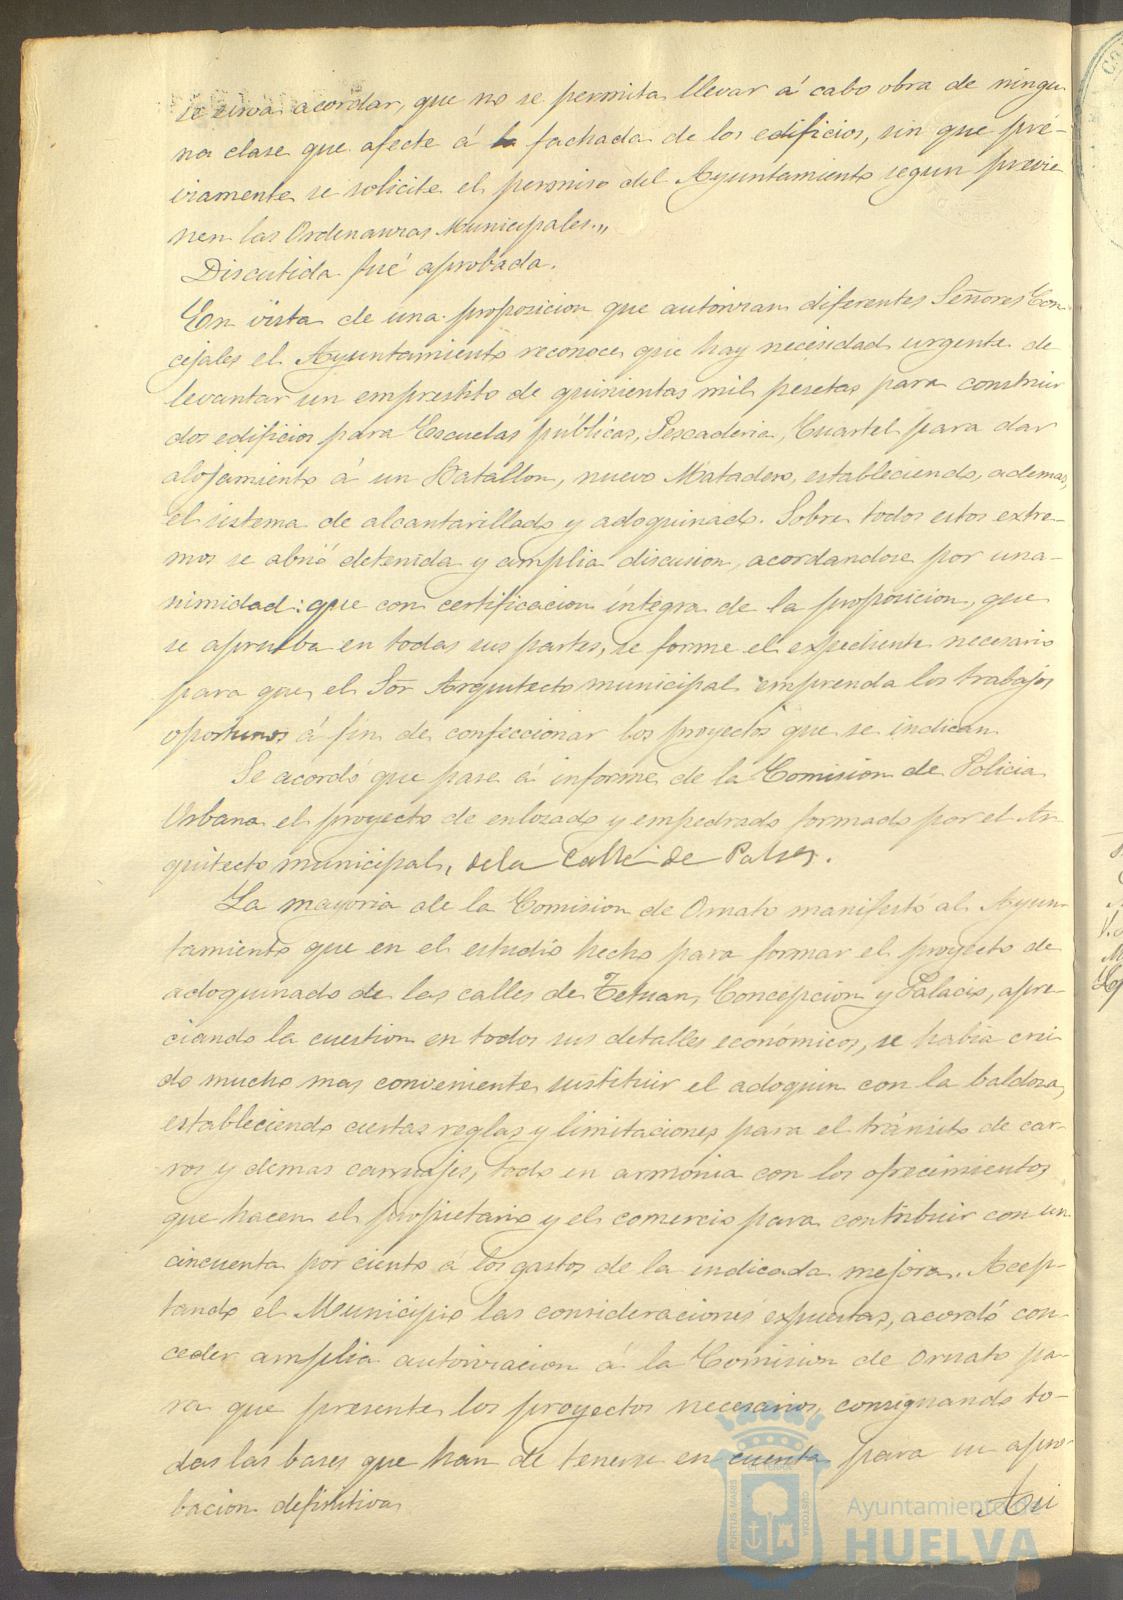 se sirva acordar, que no se permita llevar á cabo obra de ningu
na clase que afecte á la fachada de los edificios, sin que pré-
viamente se solicite el permiso del Ayuntamiento segun previe
nen las Ordenanzas Municipales.,,
Discutida fué aprobada.
En vista de una proposicion que autorizan diferentes Señores Con-
cejales el Ayuntamiento reconoce, que hay necesidad urgente de
levantar un emprestito de quinientas mil pesetas para construir
dos edificios para Escuelas públicas, Pescaderia, Cuartel para dar
alojamiento á un Batallon, nuevo Matadero, estableciendo, ademas,
el sistema de alcantarillado y adoquinado. Sobre todos estos extre-
mos se abrió detenida y amplia discusion, acordandose por una-
nimidad: que con certificacion íntegra de la proposicion, que
se aprueba en todas sus partes, se forme el expediente necesario
para que el Sor Arquitecto municipal emprenda los trabajos
oportunos á fin de confeccionar los proyectos que se indican
Se acordó que pase á informe de la Comision de Policia
Urbana el proyecto de enlosado y empedrado formado por el Ar
quitecto municipal, de la Calle de Palos.
La mayoria de la Comision de Ornato manifestó al Ayun-
tamiento que en el estudio hecho para formar el proyecto de
adoquinado de las calles de Tetuan, Concepcion y Palacio, apre-
ciando la cuestion en todos sus detalles económicos, se habia crei
do mucho mas conveniente sustituir el adoquin con la baldosa,
estableciendo ciertas reglas y limitaciones para el tránsito de car-
ros y demas carruajes, todo en armonia con los ofrecimientos
que hacen el propietario y el comercio para contribuir con un
cincuenta por ciento á los gastos de la indicada mejora. Acep-
tando el Municipio las consideraciones expuestas, acordó con-
ceder amplia autorizacion á la Comision de Ornato pa-
ra que presente los proyectos necesarios, consignando to-
das las bases que han de tenerse en cuenta para su apro-
bacion definitiva
Asi
Ayuntamiento de
HUELVA
PORTUS MARIS